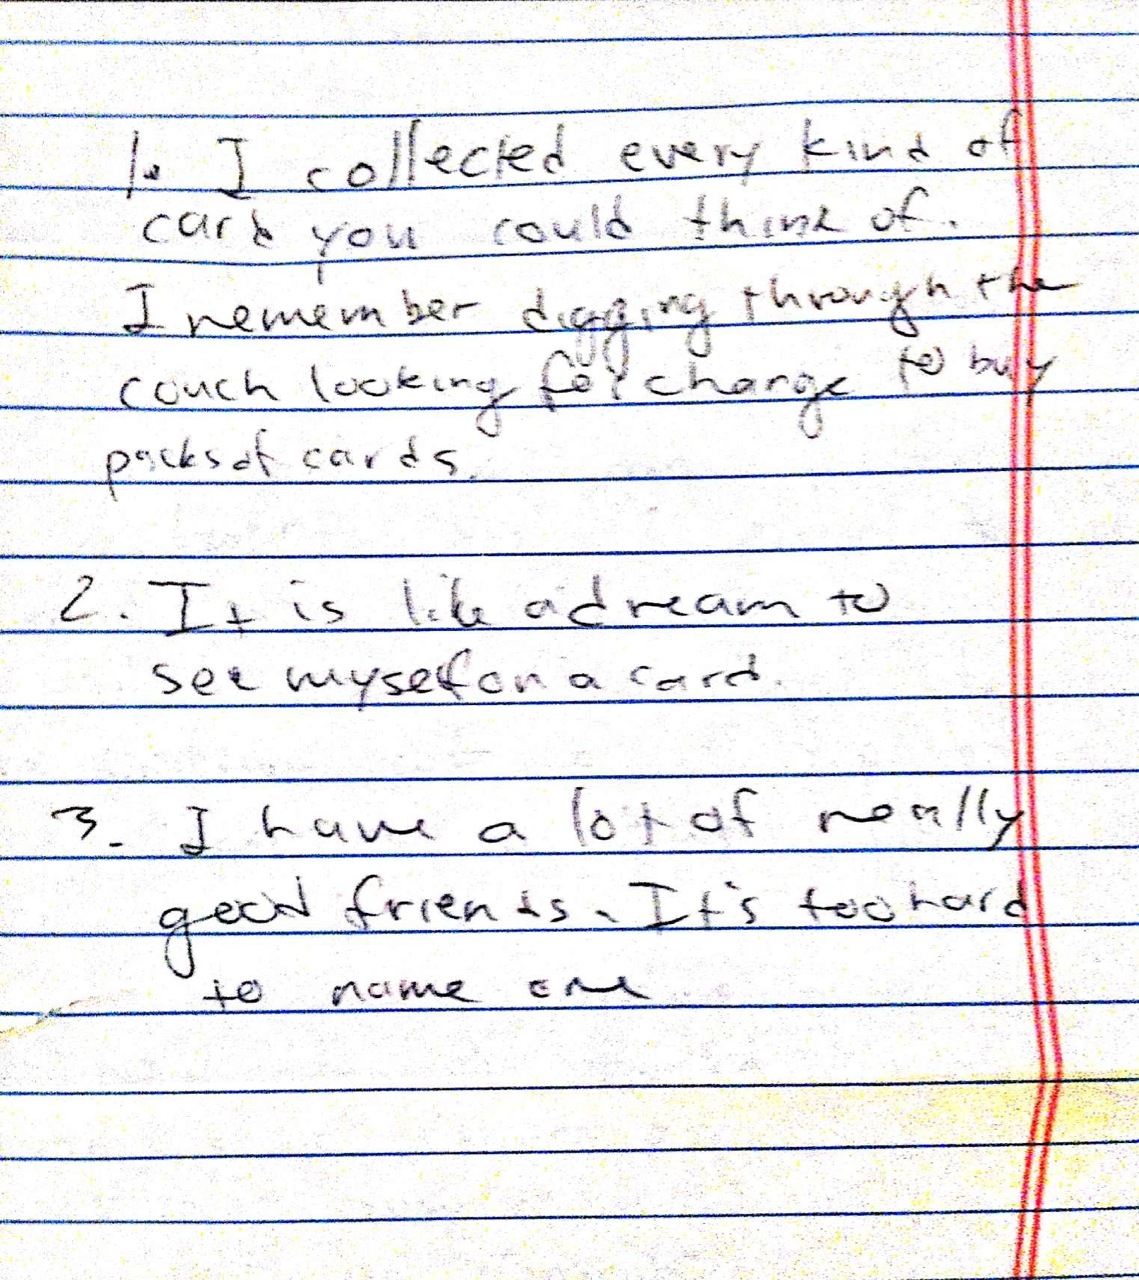 1. I collected every kind of
card you could think of.
I remember digging through the
couch looking for change to buy
packs of cards.
2. It is like a dream to
see myself on a card.
3. I have a lot of really
good friends. It's too hard
to name one